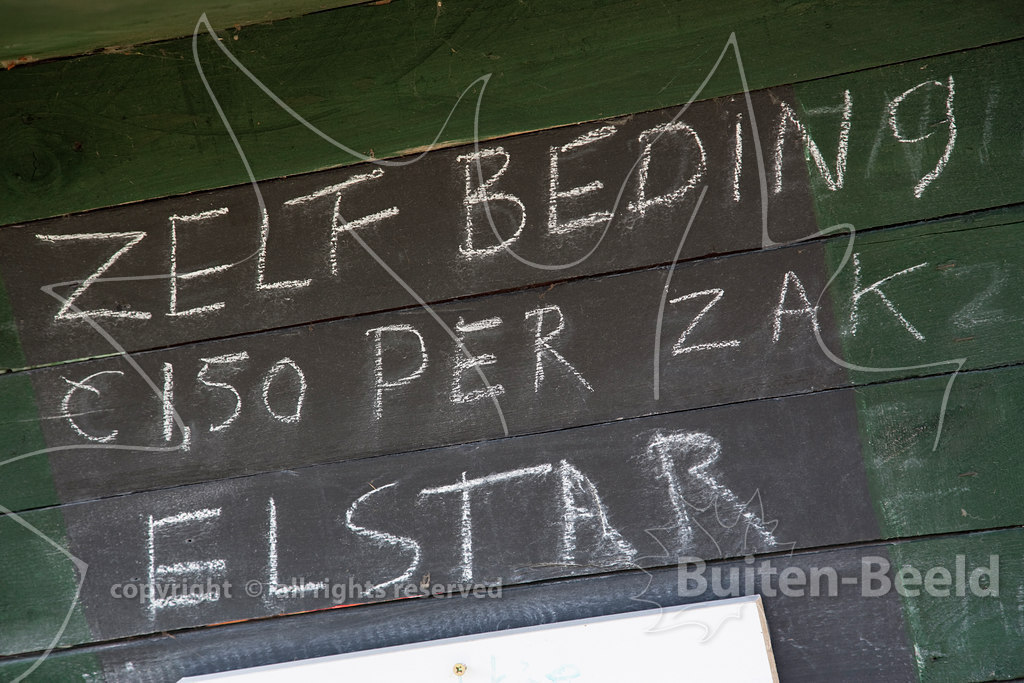 ZELF BEDING
€1,50 PER ZAK
ELSTAR
copyright © all rights reserved
Buiten-Beeld